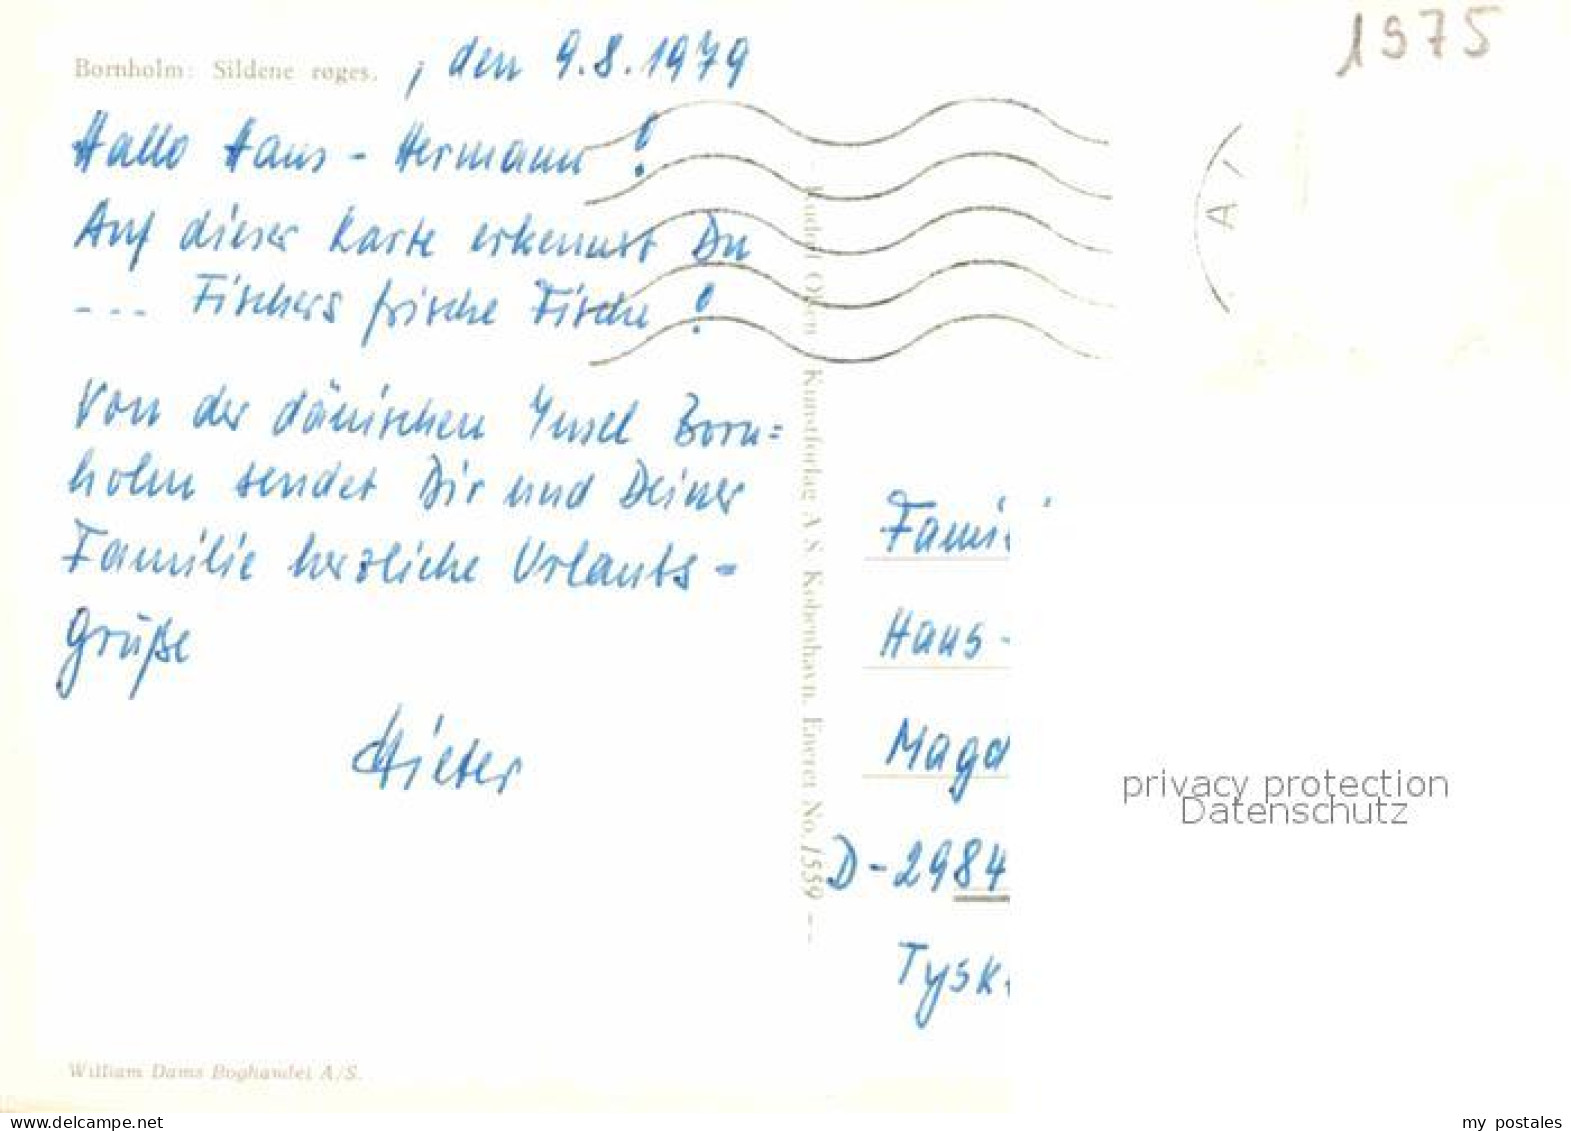 1975
Bornholm: Sildene røges. , den 9.8.1979
Hallo Hans-Hermann!
Auf dieser Karte erkennst Du
--- Fischers frische Fische!
Von der dänischen Insel Born=
holm sendet Dir und Deiner
Familie herzliche Urlaubs-
Grüße
Dieter
William Dams Boghandel A/S.
Rudolf Olsen Kunstforlag A.S. København. Eneret No. 1559
A
Fami
Hans-
Magd
D-2984
Tysk
privacy protection
Datenschutz
www.delcampe.net
my_postales